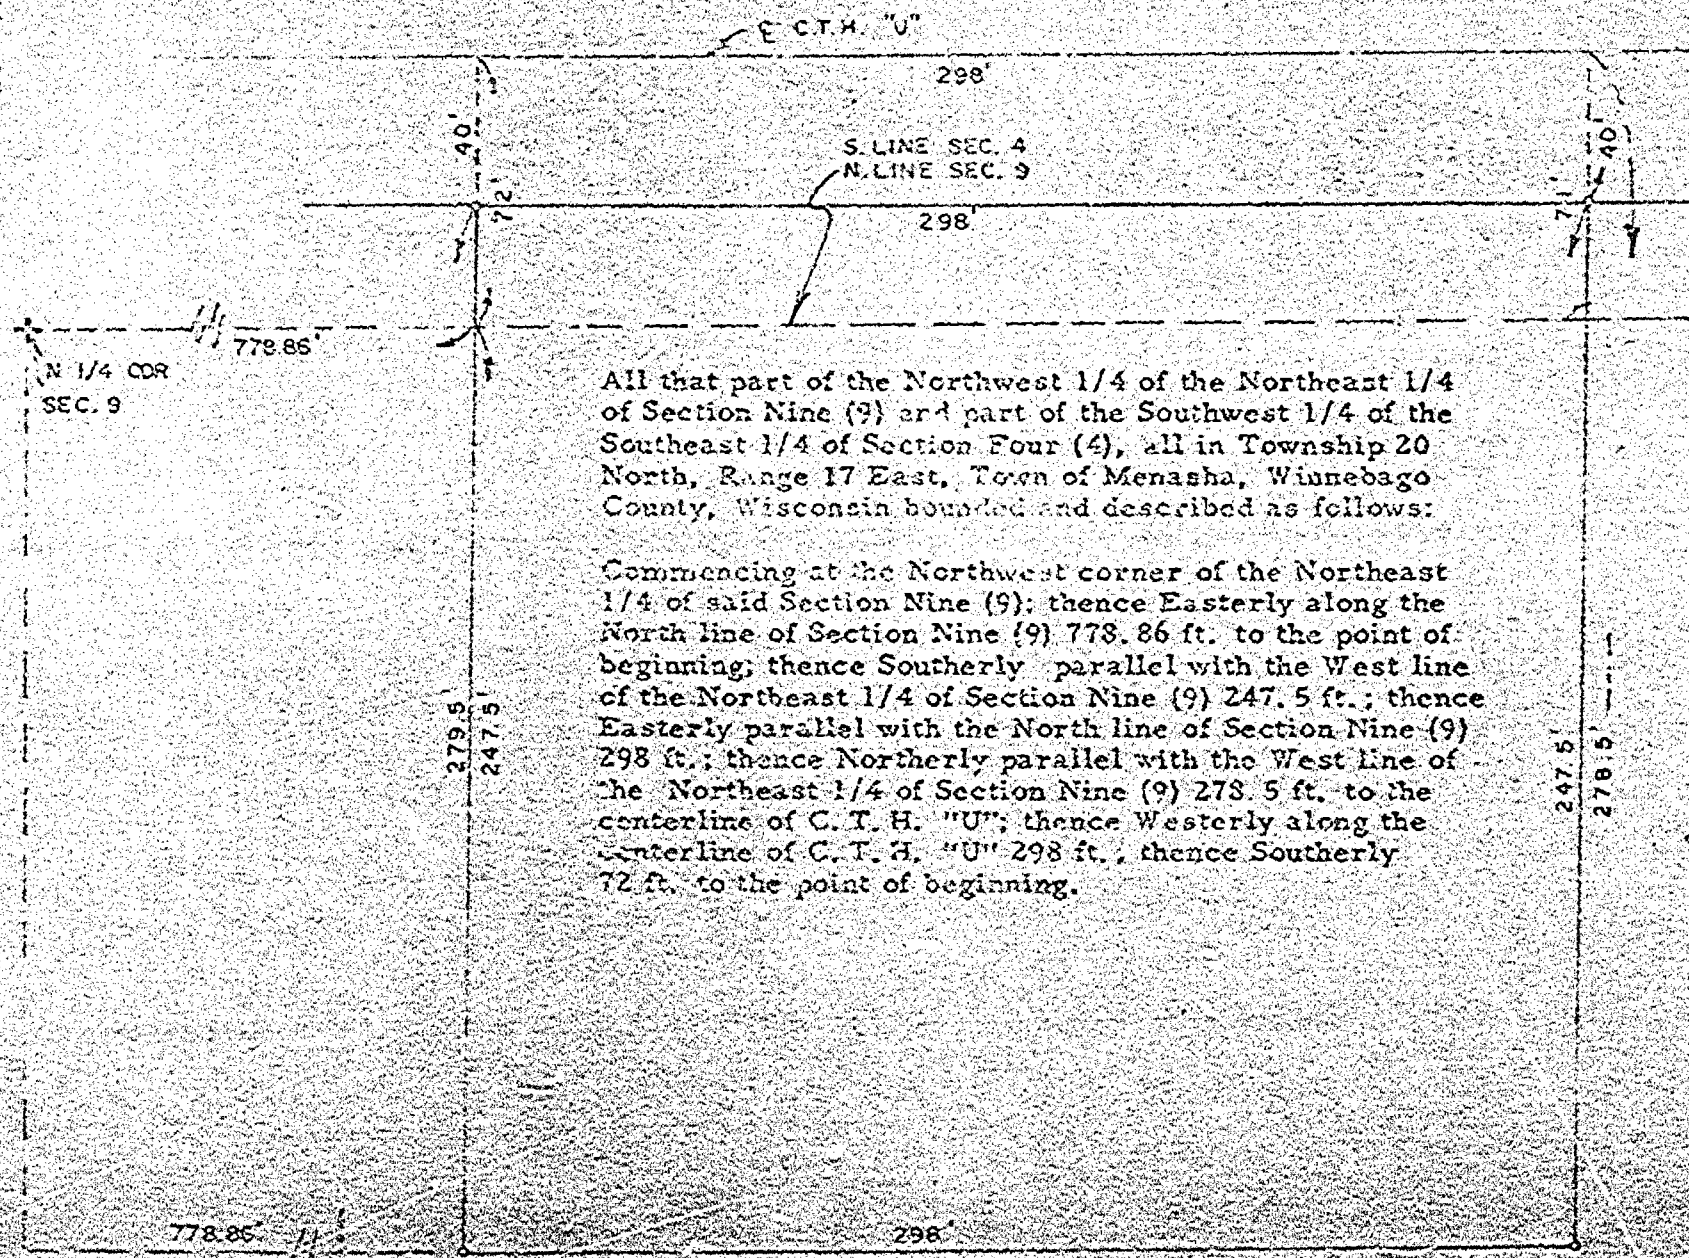 ℄ C.T.H. "U"
298'
40'
40'
S. LINE SEC. 4
N. LINE SEC. 9
72'
71'
298'
778.86'
N 1/4 COR
SEC. 9
All that part of the Northwest 1/4 of the Northeast 1/4
of Section Nine (9) and part of the Southwest 1/4 of the
Southeast 1/4 of Section Four (4), all in Township 20
North, Range 17 East, Town of Menasha, Winnebago
County, Wisconsin bounded and described as follows:
Commencing at the Northwest corner of the Northeast
1/4 of said Section Nine (9); thence Easterly along the
North line of Section Nine (9) 778.86 ft. to the point of
beginning; thence Southerly parallel with the West line
of the Northeast 1/4 of Section Nine (9) 247.5 ft.; thence
Easterly parallel with the North line of Section Nine (9)
298 ft.; thence Northerly parallel with the West Line of
the Northeast 1/4 of Section Nine (9) 278.5 ft. to the
centerline of C. T. H. "U"; thence Westerly along the
centerline of C. T. H. "U" 298 ft.; thence Southerly
72 ft. to the point of beginning.
279.5'
247.5'
247.5'
278.5'
778.86'
298'